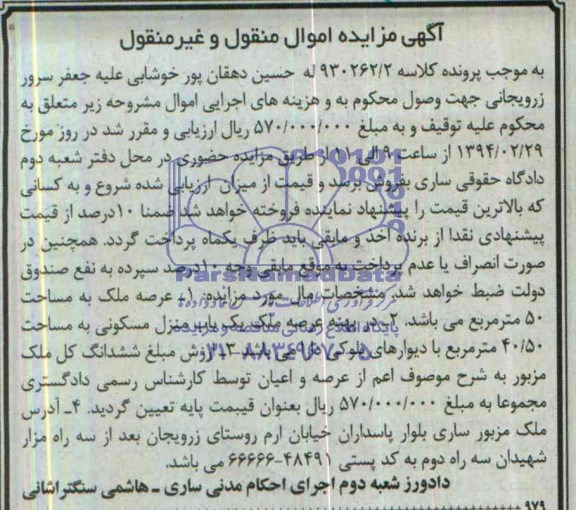 آگهی مزایده اموال منقول و غیرمنقول
به موجب پرونده کلاسه ۹۳۰۲۶۲/۲ له حسین دهقان پور خوشابی علیه جعفر سرور
زرویجانی جهت وصول محکوم به و هزینه های اجرایی اموال مشروحه زیر متعلق به
محکوم علیه توقیف و به مبلغ ۵۷۰/۰۰۰/۰۰۰ ریال ارزیابی و مقرر شد در روز مورخ
۱۳۹۴/۰۲/۲۹ از ساعت ۹ الی ۱۱ از طریق مزایده حضوری در محل دفتر شعبه دوم
دادگاه حقوقی ساری بفروش برسد و قیمت از میزان ارزیابی شده شروع و به کسانی
که بالاترین قیمت را پیشنهاد نماینده فروخته خواهد شد ضمنا ۱۰درصد از قیمت
پیشنهادی نقدا از برنده اخذ و مابقی باید ظرف یکماه پرداخت گردد. همچنین در
صورت انصراف یا عدم پرداخت به موقع مابقی وجه ۱۰درصد سپرده به نفع صندوق
دولت ضبط خواهد شد. مشخصات مال مورد مزایده: ۱ـ عرصه ملک به مساحت
۵۰ مترمربع می باشد. ۲ـ در عرصه ملک یک باب منزل مسکونی به مساحت
۴۰/۵۰ مترمربع با دیوارهای بلوکی می باشد ۳ـ ارزش مبلغ ششدانگ کل ملک
مزبور به شرح موصوف اعم از عرصه و اعیان توسط کارشناس رسمی دادگستری
مجموعا به مبلغ ۵۷۰/۰۰۰/۰۰۰ ریال بعنوان قیبمت پایه تعیین گردید. ۴ـ آدرس
ملک مزبور ساری بلوار پاسداران خیابان ارم روستای زرویجان بعد از سه راه مزار
شهیدان سه راه دوم به کد پستی ۴۸۴۹۱-۶۶۶۶۶ می باشد.
دادورز شعبه دوم اجرای احکام مدنی ساری ـ هاشمی سنگتراشانی
۹۷۹
ParsNamadData